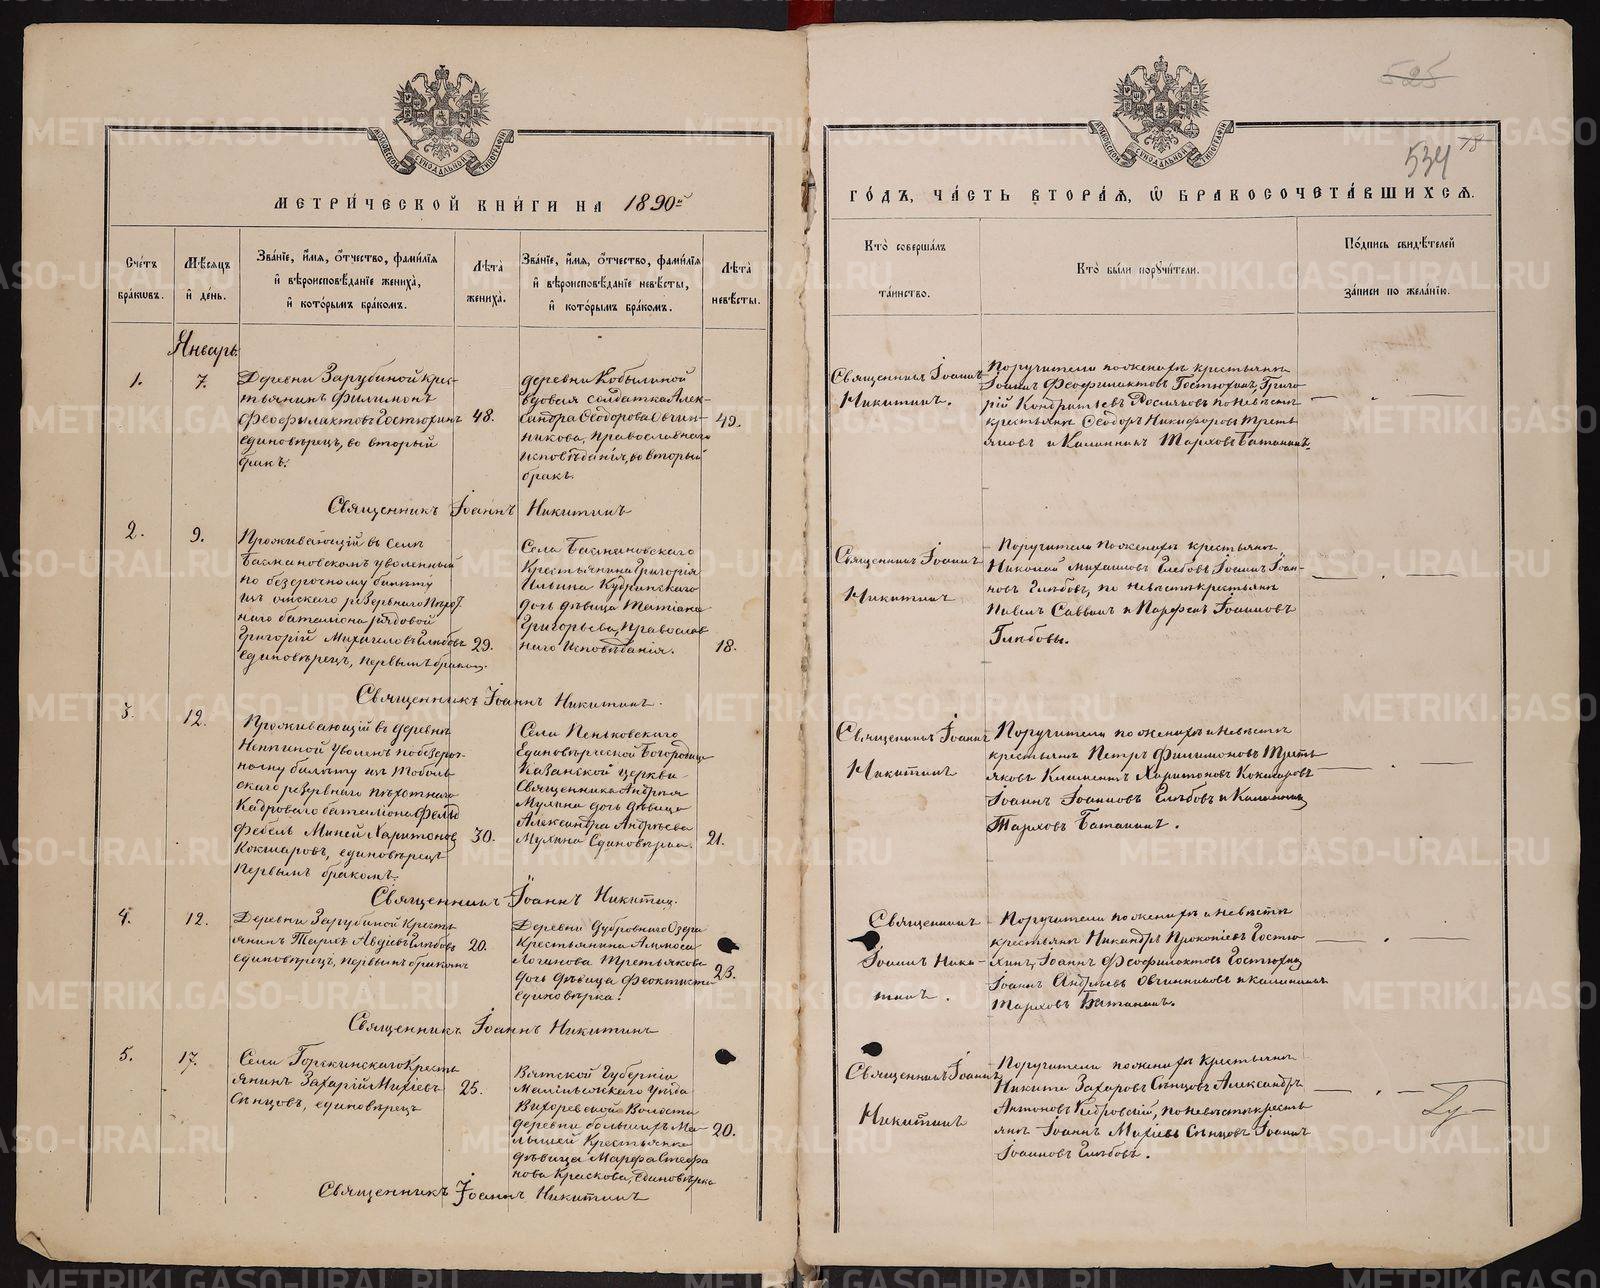 МЕТРИ́ЧЕСКОЙ КНИ́ГИ НА 1890й
ГО́ДЪ, ЧА́СТЬ ВТОРА́Я, Ѿ БРАКОСОЧЕТА́ВШИХСЯ.
525
534
78
Сче́тъ бра́кѡвъ.
Мѣ́сяцъ и҆ де́нь.
Зва́нїе, и҆́мѧ, ѻ҆́тчество, фами́лїѧ и҆ вѣроисповѣ́данїе жениха̀, и҆ кото́рымъ бра́комъ.
Лѣ́та жениха̀.
Зва́нїе, и҆́мѧ, ѻ҆́тчество, фами́лїѧ и҆ вѣроисповѣ́данїе невѣ́сты, и҆ кото́рымъ бра́комъ.
Лѣ́та невѣ́сты.
Кто̀ соверша́лъ та́инство.
Кто̀ бы́ли порꙋчи́тели.
По́дпись свидѣ́телей за́писи по жела́нїю.
Январь.
1.
7.
Деревни Зарубиной крес-
тьянинъ Филимонъ
Феофилактовъ Гостюхинъ
единовѣрецъ, во вторый
бракъ.
48.
деревни Кобылиной
вдовая солдатка Алек-
сандра Ѳеодорова Овчин-
никова, Православнаго
исповѣданія, во вторый
бракъ.
49.
Священникъ Іоаннъ
Никитинъ.
Поручители по женихѣ крестьяне
Іоаннъ Феофилактовъ Гостюхинъ, Григо-
рій Кондратьевъ по невѣстѣ
крестьяне Ѳеодоръ Никифоровъ Треть-
яковъ и Калинникъ Тарховъ Батанинъ.
Священникъ Іоаннъ Никитинъ
2.
9.
Проживающій въ селѣ
Басмановскомъ уволенный
по безсрочному билету
изъ Омскаго резервнаго Пѣхот
наго баталіона рядовой
Григорій Михаиловъ Глѣбовъ
единовѣрецъ, первымъ бракомъ.
29.
Села Басмановскаго
Крестьянина Григорія
Ильина Кудринскаго
дочь дѣвица Татіана
Григорьева, Православ
наго исповѣданія.
18.
Священникъ Іоаннъ
Никитинъ
Поручители по женихѣ крестьяне
Николай Михаиловъ Глебовъ Іоаннъ Іоан-
новъ Глѣбовъ, по невѣстѣ крестьяне
Павелъ Саввинъ и Парфенъ Іоанновъ
Глѣбовы.
Священникъ Іоаннъ Никитинъ.
3.
12.
Проживающій въ деревнѣ
уволен. по безсроч-
ному билету изъ Тоболь
скаго резервнаго пѣхотнаго
Кадроваго баталіона Фельд
фебель Миней Харитоновъ
Кокшаровъ, единовѣрецъ
первымъ бракомъ.
30.
Села Пеньковскаго
Единовѣрческой Богородице
Казанской церкви
Священника Андрея
Мухина дочь дѣвица
Александра Андреева
Мухина Единовѣрка.
21.
Священникъ Іоаннъ
Никитинъ
Поручители по женихѣ и невѣстѣ
крестьяне Петръ Филимоновъ Треть
яковъ Климентъ Харитоновъ Кокшаровъ
Іоаннъ Іоанновъ Глѣбовъ и Калинникъ
Тарховъ Батанинъ.
Священникъ Іоаннъ Никитин.
4.
12.
Деревни Зарубиной Кресть
янинъ Тархъ Авдіевъ Глѣбовъ
единовѣрецъ, первымъ бракомъ
20.
Деревни Дубровнаго Озера
Крестьянина
Логинова Третьякова
дочь дѣвица Феоктиста
единовѣрка.
23.
Священникъ
Іоаннъ Ники-
тинъ.
Поручители по женихѣ и невѣстѣ
крестьяне Никандръ Прокопіевъ Гостю-
хинъ, Іоаннъ Феофилактовъ Гостюхинъ
Іоаннъ Андреевъ Овчинниковъ и Калинникъ
Тарховъ Батанинъ.
Священникъ Іоаннъ Никитинъ
5.
17.
Села Крестъ
янинъ Захарій Михѣевъ
Сѣнцовъ, единовѣрецъ
25.
Вятской Губерніи
Малмыжскаго Уѣзда
Волости
деревни большихъ Ма-
Крестьянка
дѣвица Марфа Стефа
нова Краскова, Единовѣрка
20.
Священникъ Іоаннъ
Никитинъ
Поручители по женихѣ крестьяне
Никита Захаровъ Сѣнцовъ Александръ
Антоновъ по невѣстѣ кресть
яне Іоаннъ Михѣевъ Сѣнцовъ Іоаннъ
Іоанновъ Глѣбовъ.
Священникъ Іоаннъ Никитинъ
METRIKI.GASO-URAL.RU